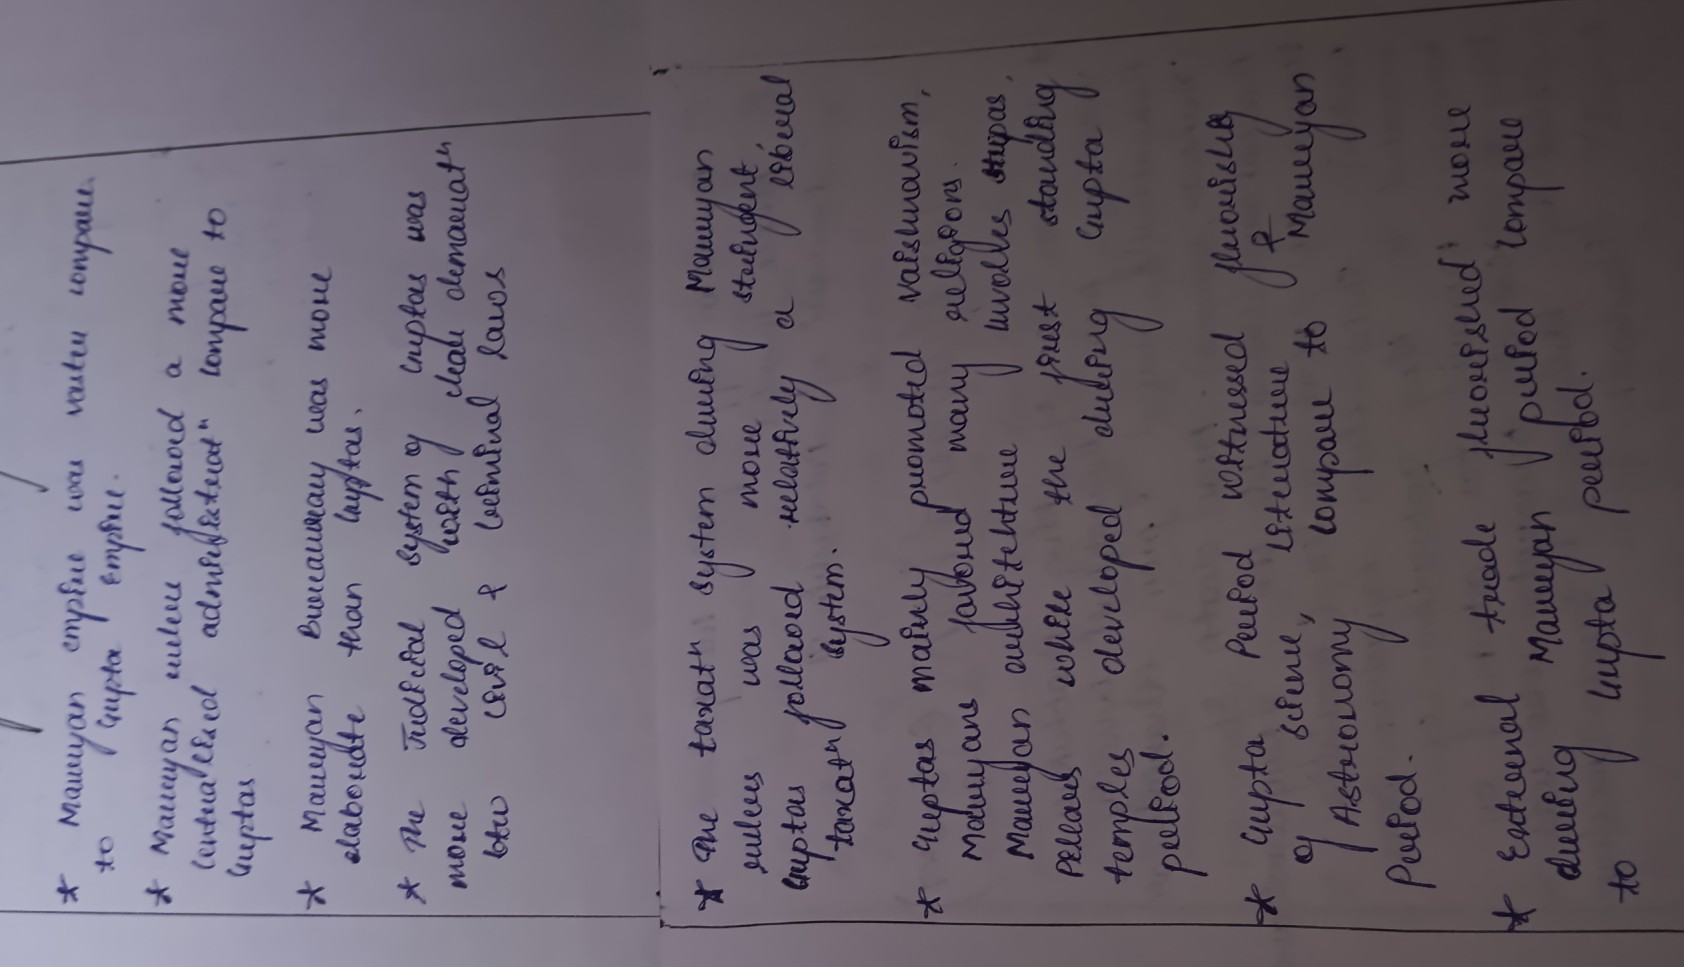 * Mauryan empire was vaster compare
to Gupta Empire.
* Mauryan rulers followed a more
Centralised administratn compare to
Guptas
* Mauryan Bureaucracy was more
elaborate than Guptas.
* The Judicial system of Guptas was
more developed with clear demarcatn
btw Civil & Criminal laws
* The taxatn system during Mauryan
rulers was more stringent,
Guptas followed relatively a liberal
taxatn system.
* Guptas mainly promoted vaishnavism,
Mauryans favoured many religions.
Mauryan architechture involves stupas,
Pillars while the first standing
temples developed during Gupta
period.
* Gupta Period witnessed flourishing
of science, literature &
Astronomy compare to Mauryan
Period.
* External trade flourished more
during Mauryan period compare
to Gupta period.